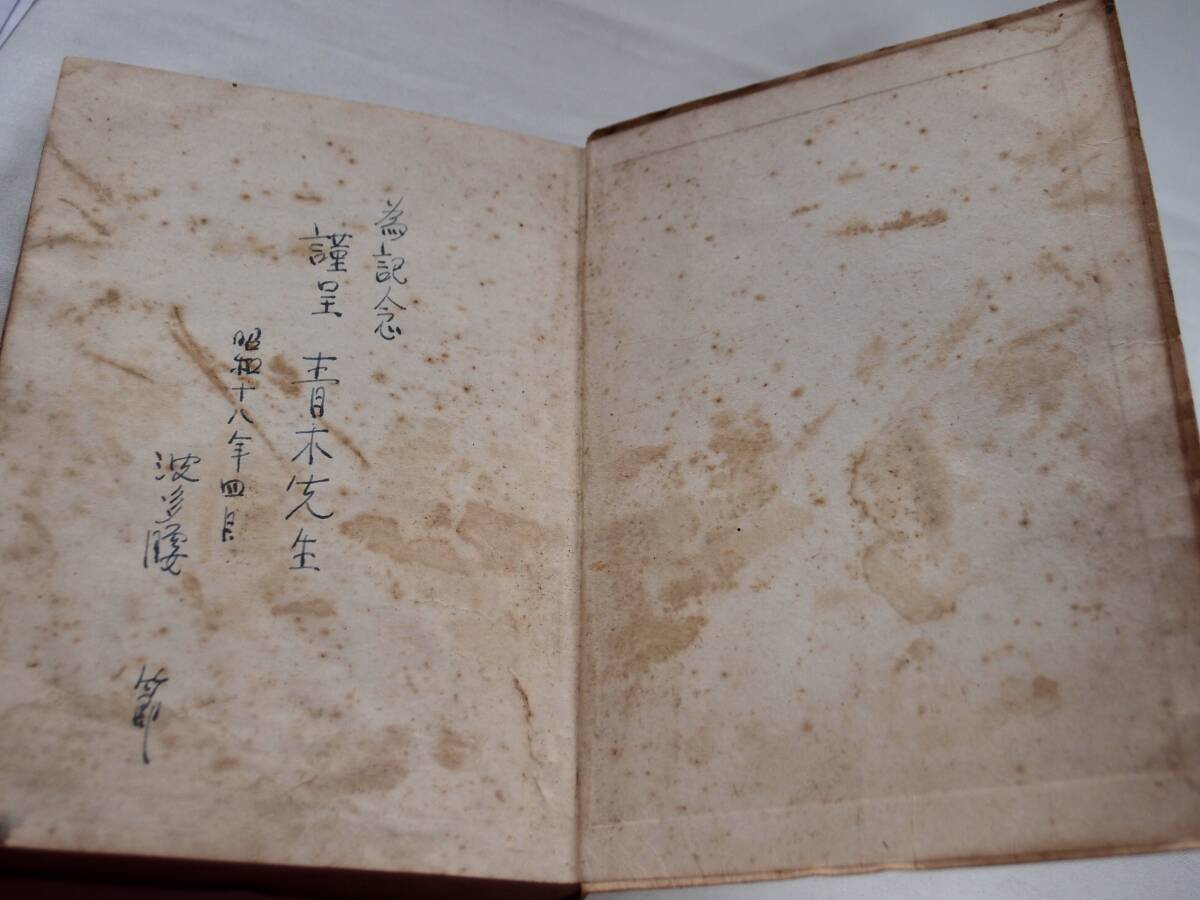 為記念
謹呈 青木先生
昭和十八年四月
波多腰 節